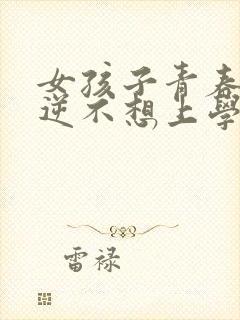 女孩子青春
逆不想上學
雷禄